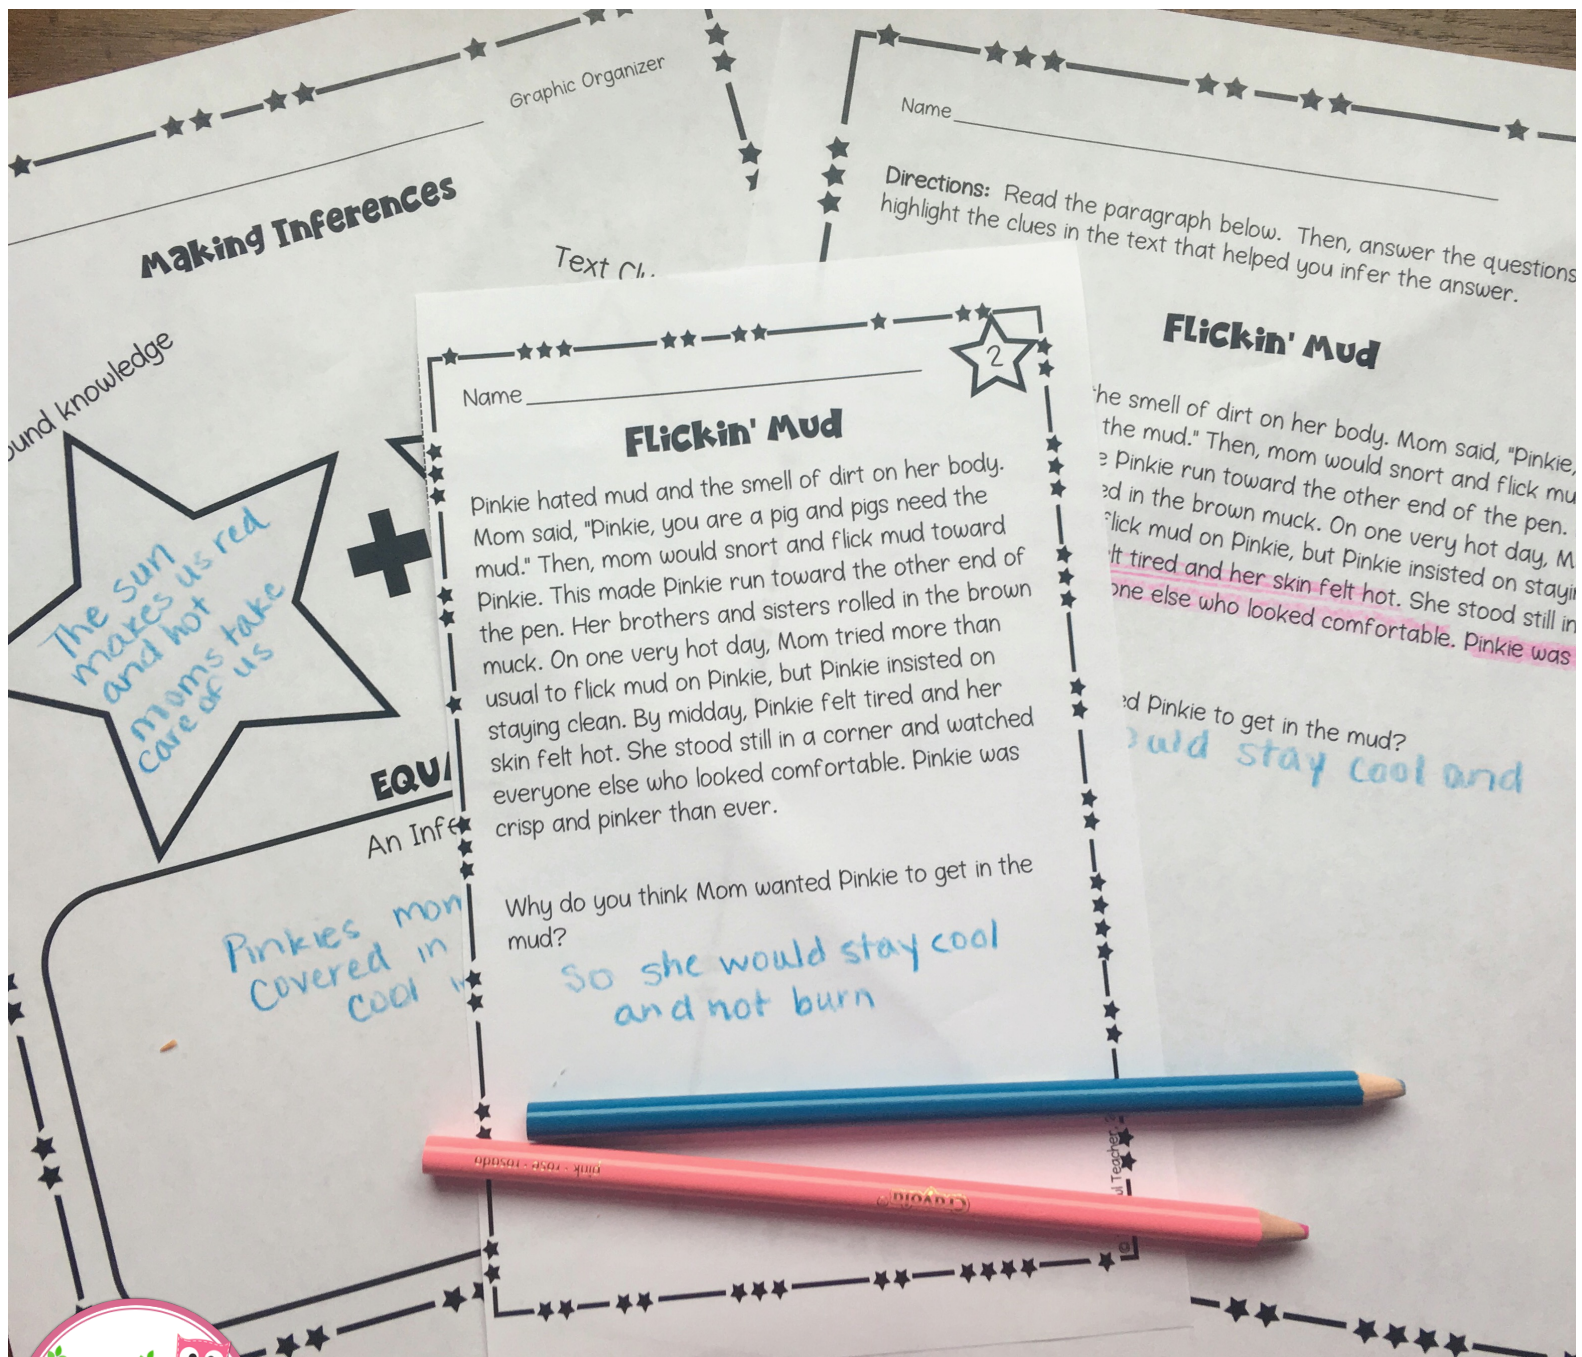 Graphic Organizer
Making Inferences
Text
knowledge
The sun
makes us red
and hot
moms take
care of us
An
Pinkies
covered in
cool
Name
Directions: Read the paragraph below. Then, answer the questions
highlight the clues in the text that helped you infer the answer.
Flickin' Mud
the smell of dirt on her body. Mom said, "Pinkie,
the mud." Then, mom would snort and flick
Pinkie run toward the other end of the pen.
in the brown muck. On one very hot day,
flick mud on Pinkie, but Pinkie insisted on
tired and her skin felt hot. She stood still in
else who looked comfortable. Pinkie was
Pinkie to get in the mud?
stay cool and
2
Name
Flickin' Mud
Pinkie hated mud and the smell of dirt on her body.
Mom said, "Pinkie, you are a pig and pigs need the
mud." Then, mom would snort and flick mud toward
Pinkie. This made Pinkie run toward the other end of
the pen. Her brothers and sisters rolled in the brown
muck. On one very hot day, Mom tried more than
usual to flick mud on Pinkie, but Pinkie insisted on
staying clean. By midday, Pinkie felt tired and her
skin felt hot. She stood still in a corner and watched
everyone else who looked comfortable. Pinkie was
crisp and pinker than ever.
Why do you think Mom wanted Pinkie to get in the
mud?
So she would stay cool
and not burn
pink · rose · rosado
Crayola
Teacher,
©